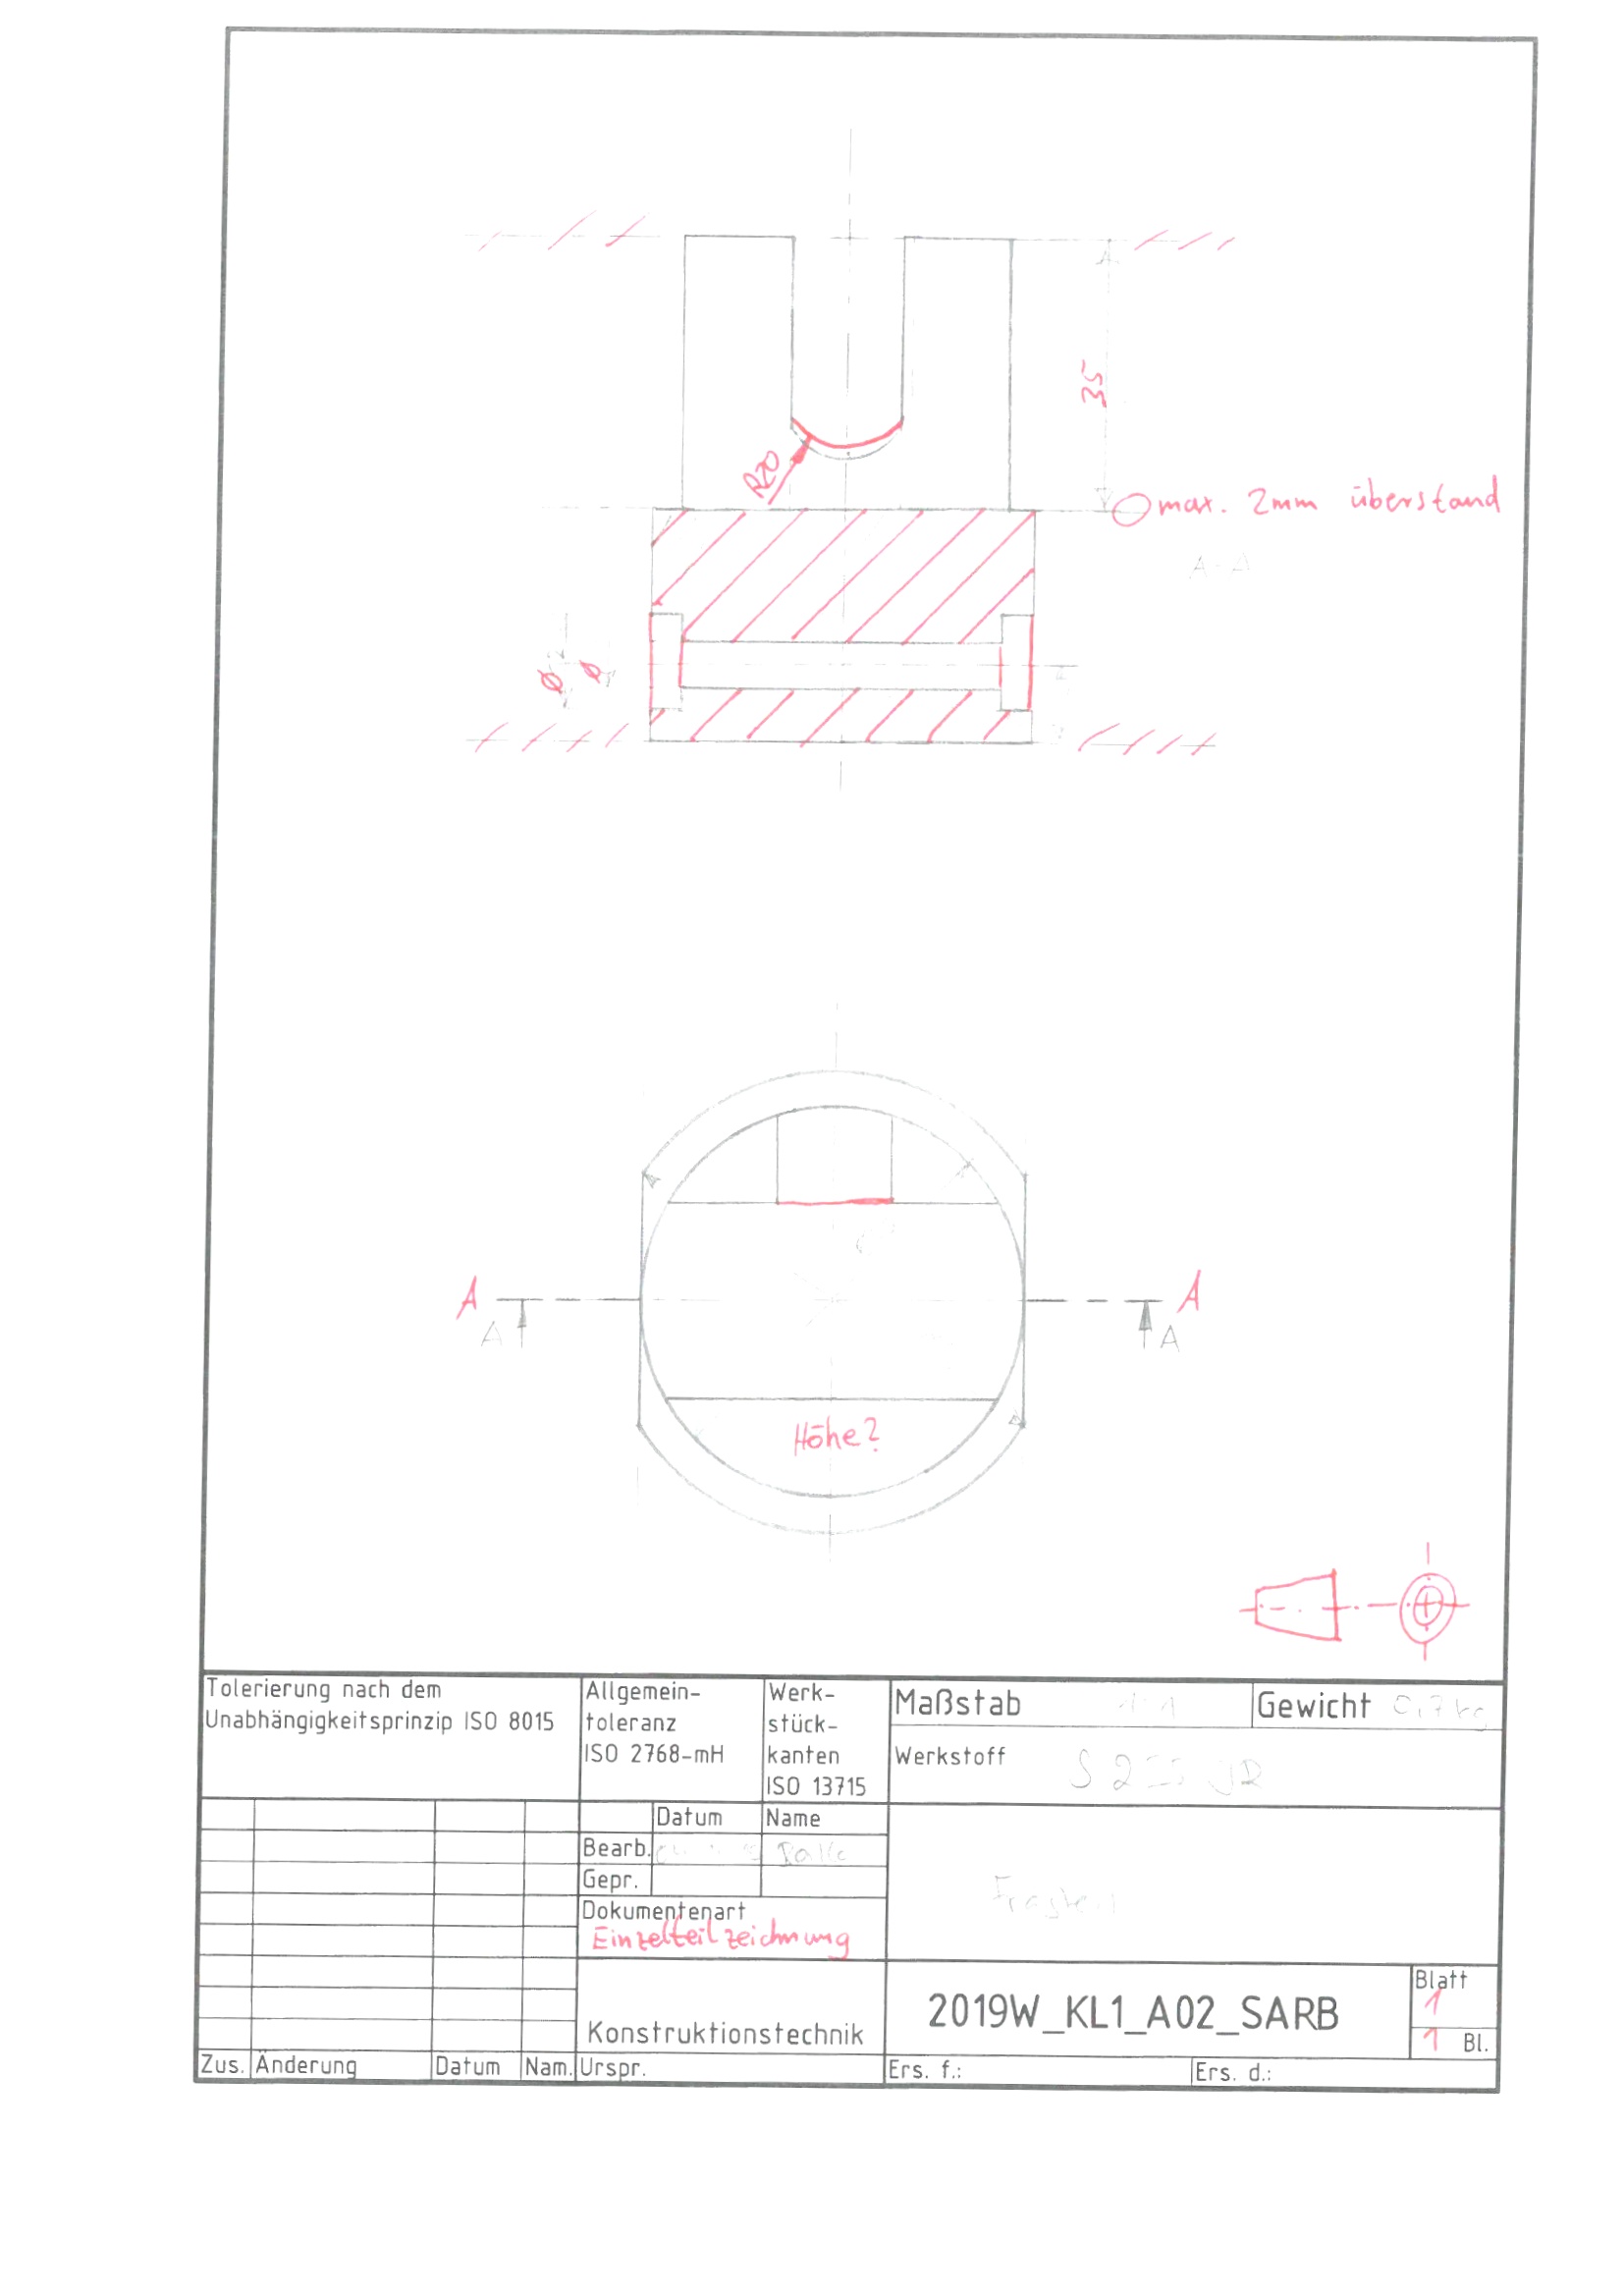 35
R20
max. 2mm überstand
A-A
Ø Ø
A A
A A
Höhe?
Tolerierung nach dem
Unabhängigkeitsprinzip ISO 8015
Allgemein-
toleranz
ISO 2768-mH
Werk-
stück-
kanten
ISO 13715
Maßstab 1:1
Gewicht 0,7 kg
Werkstoff
Datum Name
Bearb.
Gepr.
Dokumentenart
Einzelteilzeichnung
Konstruktionstechnik
2019W_KL1_A02_SARB
Blatt
1
1 Bl.
Zus. Änderung Datum Nam. Urspr. Ers. f.: Ers. d.: